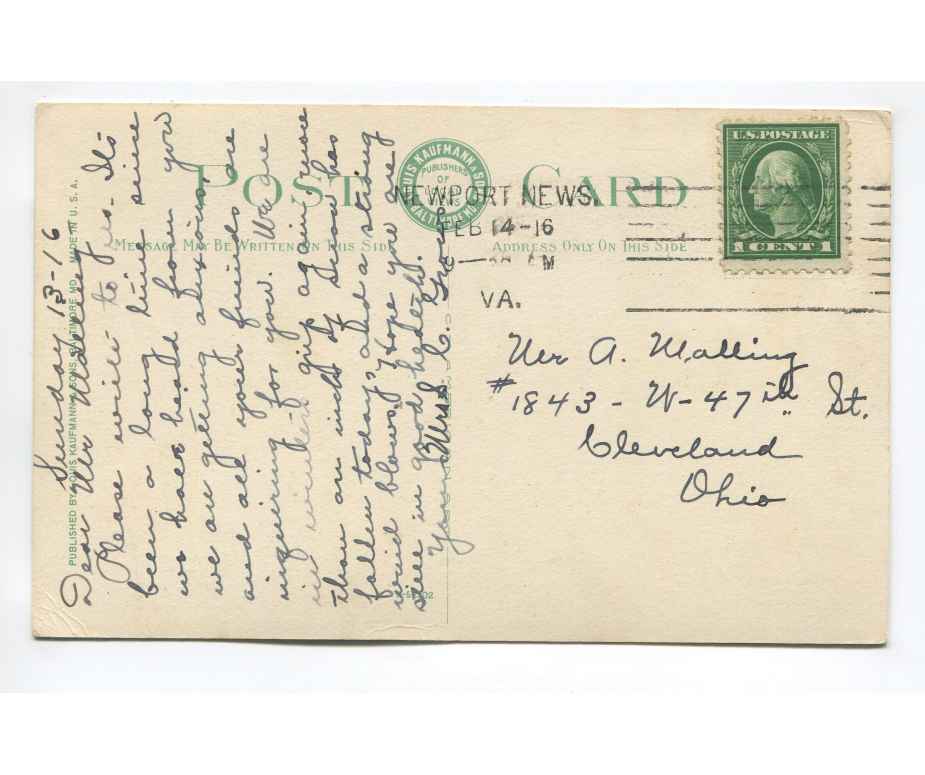 Sunday 13-16
Dear Mr
Please write to us. Its
been a long time since
we have heard from you
we are getting anxious
and all your friends are
inquiring for you. We are
in winter's grip again more
than an inch of snow has
fallen today, and a strong
wind blows, I hope you are
still in good health.
Yours Mrs C.
POST CARD
LOUIS KAUFMANN & SONS
PUBLISHERS
OF
BALTIMORE MD.
MESSAGE MAY BE WRITTEN ON THIS SIDE
ADDRESS ONLY ON THIS SIDE
PUBLISHED BY LOUIS KAUFMANN & SONS, BALTIMORE MD. MADE IN U.S.A.
NEWPORT NEWS.
FEB 14-16
VA.
U.S. POSTAGE
1 CENT 1
Mr A. Malling
#1843 - W - 47th St.
Cleveland
Ohio